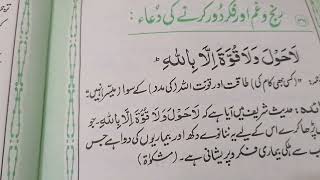 رنج و غم اور فکر دور کرنے کی دعاء:
لَا حَوْلَ وَلَا قُوَّةَ اِلَّا بِاللّٰهِ
(کسی بھی کام کی) طاقت اور قوت اللہ (کی مدد) کے سوا میسر نہیں
حدیث شریف میں آیا ہے کہ لَا حَوْلَ وَلَا قُوَّةَ اِلَّا بِاللّٰهِ جو
پڑھا کرے اس کے لیے یہ ننانوے دکھ اور بیماریوں کی دوا ہے جس
سب سے ہلکی بیماری فکر و پریشانی ہے۔ (مشکوٰۃ)